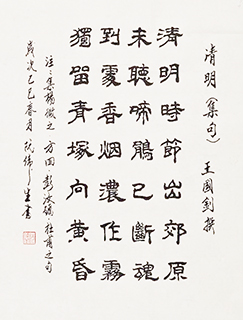 清明(集句) 王國釗撰
清明時節出郊原
未聽啼鵑已斷魂
到處香烟濃作霧
獨留青塚向黃昏
注:集楊徽之 方回 彭汝礪 杜甫之句
歲次乙巳春月